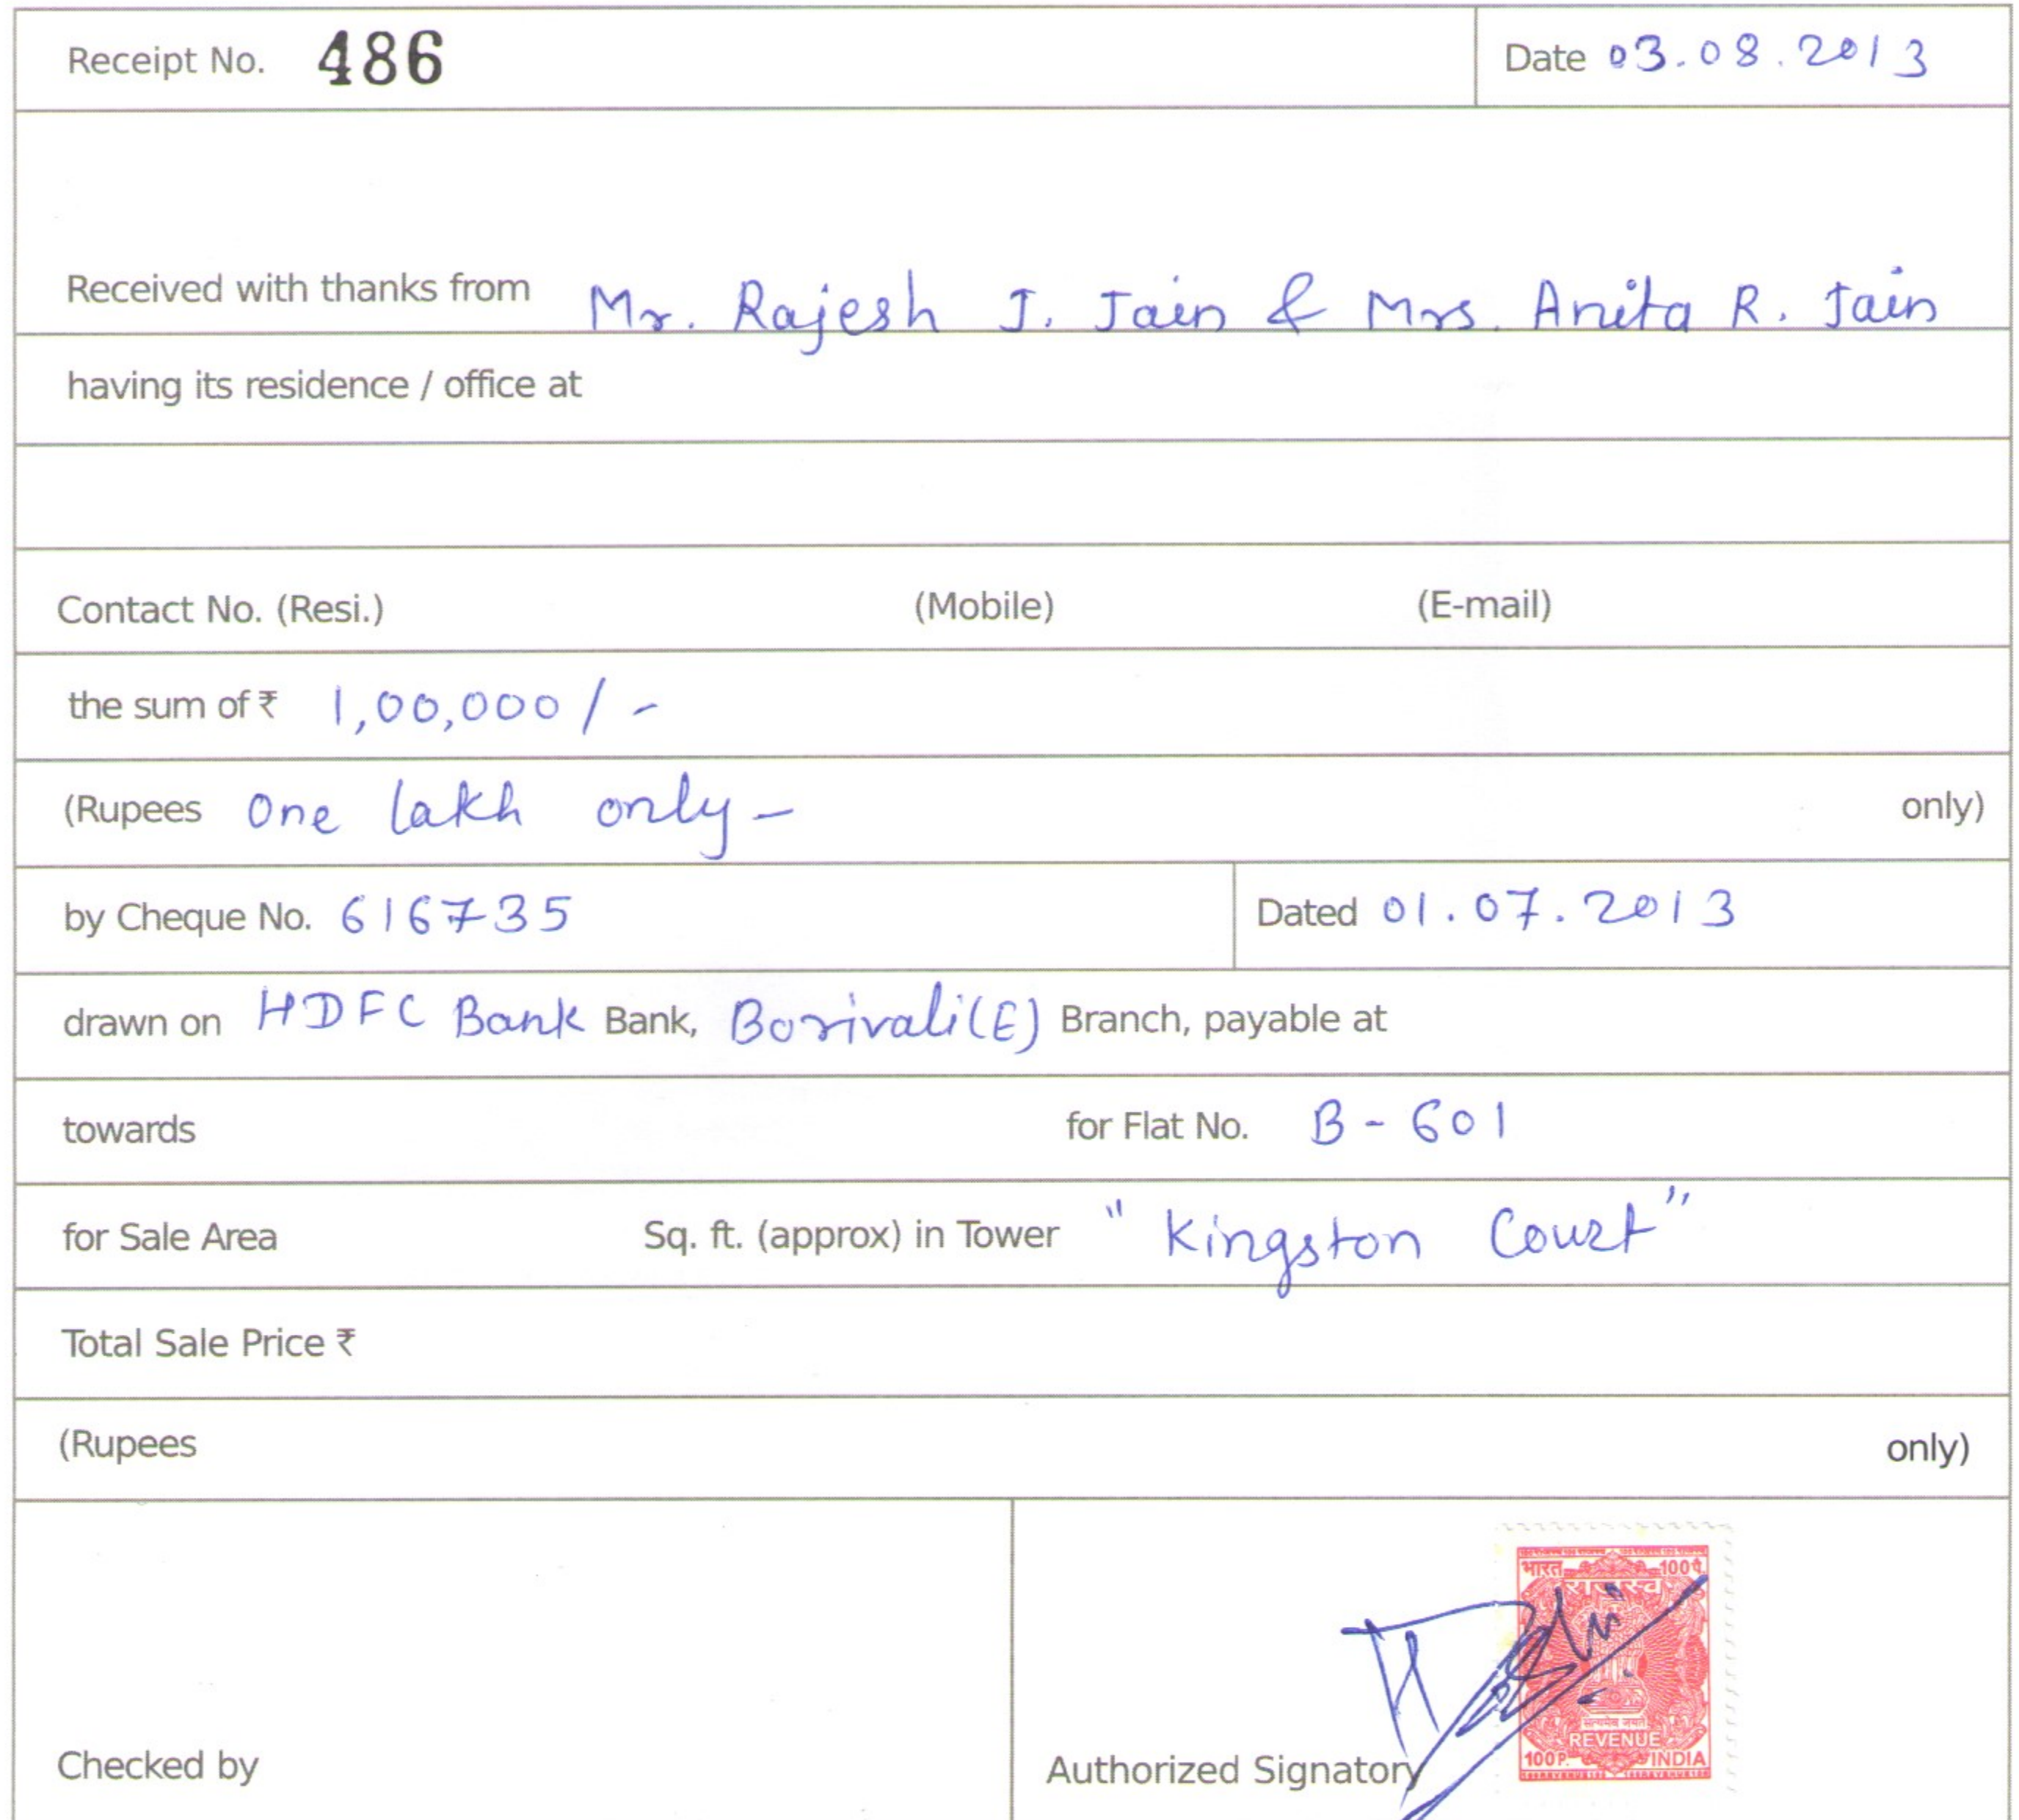 Receipt No. 486 Date 03.08.2013
Received with thanks from Mr. Rajesh J. Jain & Mrs. Anita R. Jain
having its residence / office at
Contact No. (Resi.) (Mobile) (E-mail)
the sum of ₹ 1,00,000/-
(Rupees One lakh only - only)
by Cheque No. 616735 Dated 01.07.2013
drawn on HDFC Bank Bank, Borivali(E) Branch, payable at
towards for Flat No. B - 601
for Sale Area Sq. ft. (approx) in Tower "Kingston Court"
Total Sale Price ₹
(Rupees only)
भारत 100पै.
राजस्व
सत्यमेव जयते
REVENUE
100P. INDIA
Checked by Authorized Signatory